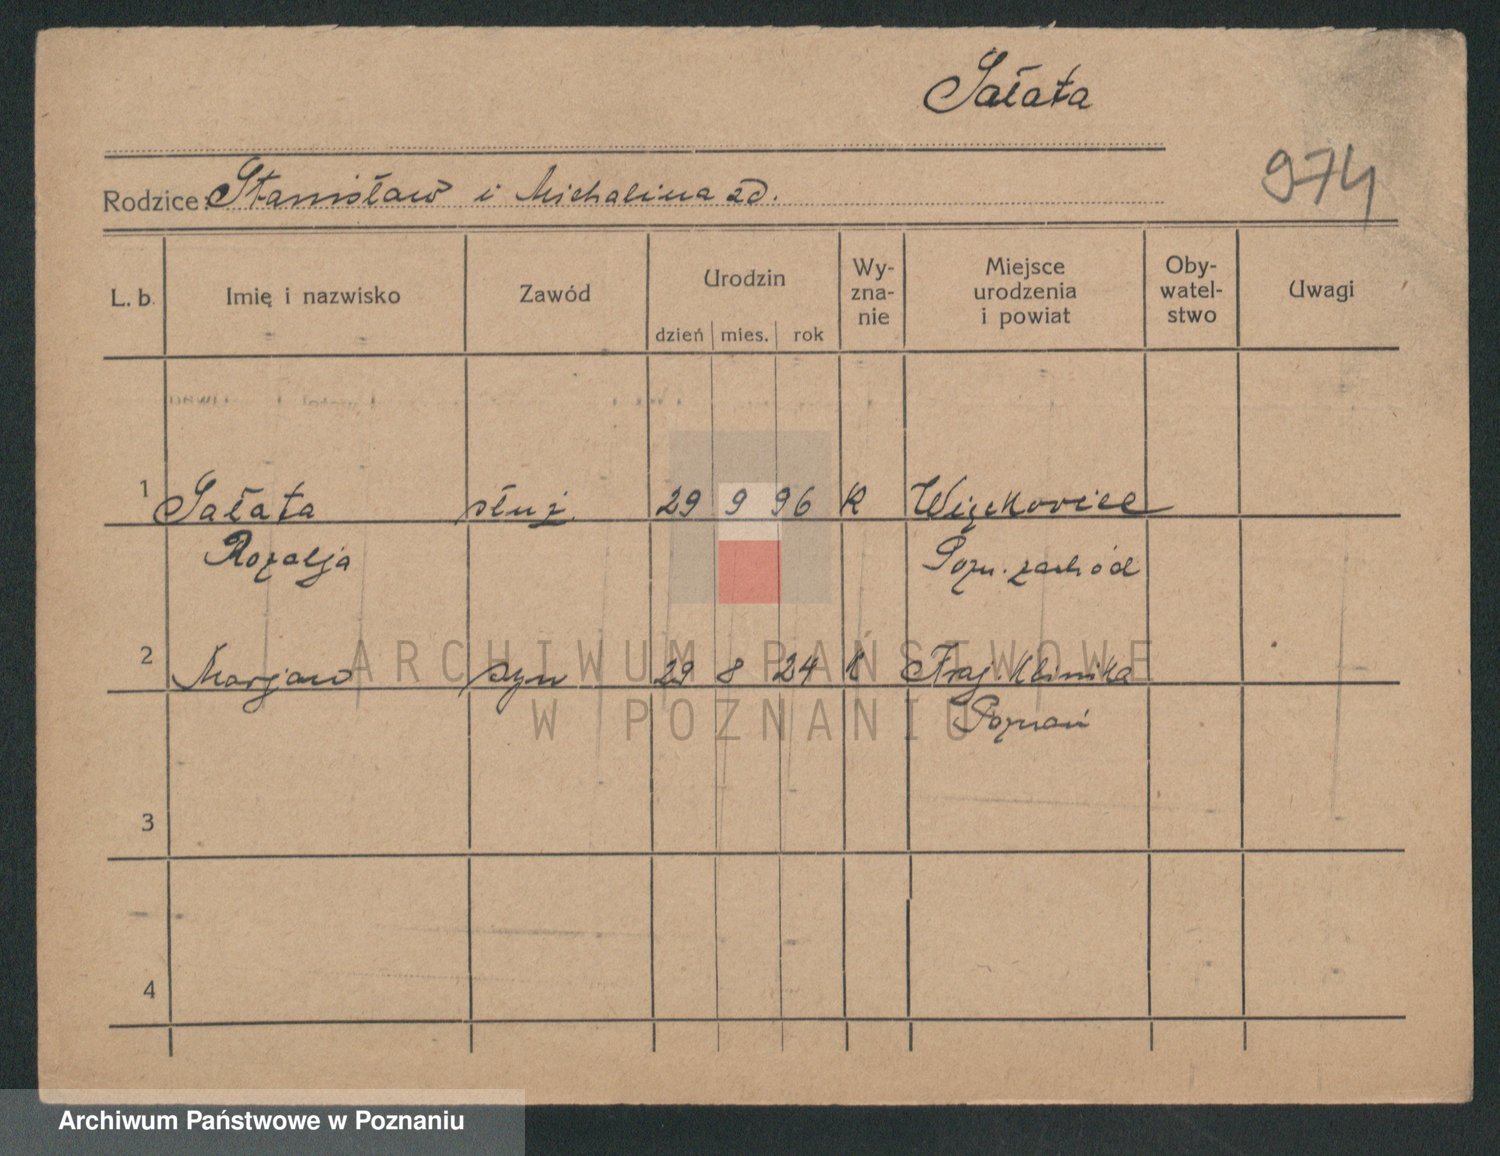 Sałata
974
Rodzice: Stanisław i Michalina zd.
L. b. Imię i nazwisko Zawód Urodzin dzień mies. rok Wy-zna-nie Miejsce urodzenia i powiat Oby-watel-stwo Uwagi
1 Sałata służ. 29 9 96 K Więckovice
Rozalja Pozn. zachód
2 Marjan syn 29 8 24 k Klinika
Poznań
3
4
ARCHIWUM PAŃSTWOWE
W POZNANIU
Archiwum Państwowe w Poznaniu